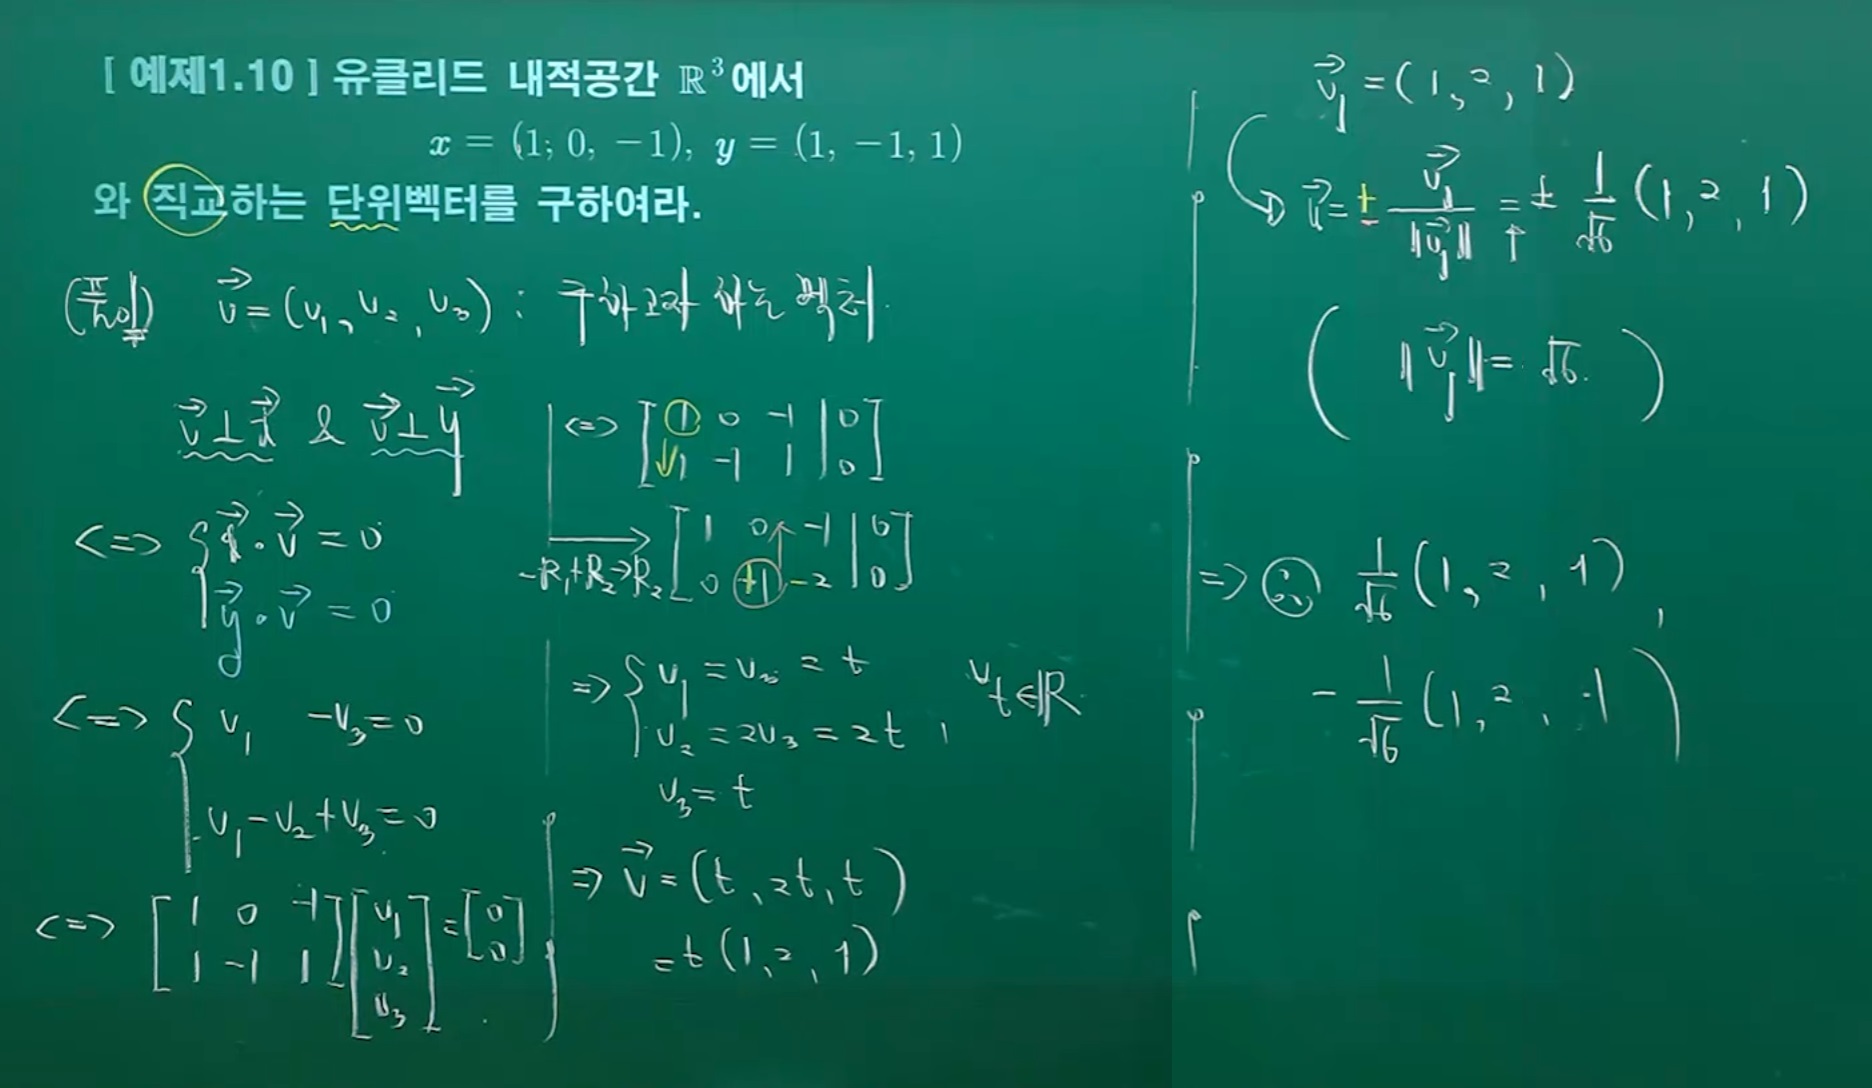 [ 예제1.10 ] 유클리드 내적공간 ℝ³에서
x = (1, 0, −1), y = (1, −1, 1)
와 직교하는 단위벡터를 구하여라.
(풀이) v⃗ = (v₁, v₂, v₃) : 구하고자 하는 벡터.
v⃗⊥x⃗ & v⃗⊥y⃗
<=> { x⃗·v⃗ = 0
y⃗·v⃗ = 0
<=> { v₁ −v₃ = 0
v₁ − v₂ + v₃ = 0
<=> [1 0 −1
1 −1 1] [v₁
v₂
v₃] = [0
0]
<=> [1 0 −1 | 0
1 −1 1 | 0]
−R₁+R₂→R₂ [1 0 −1 | 0
0 +1 −2 | 0]
=> { v₁ = v₃ = t
v₂ = 2v₃ = 2t , ∀t∈ℝ
v₃ = t
=> v⃗ = (t, 2t, t)
= t(1, 2, 1)
v⃗₁ = (1, 2, 1)
u⃗ = ± v⃗₁/‖v⃗₁‖ = ± 1/√6 (1, 2, 1)
( ‖v⃗₁‖ = √6 )
=> ∴ 1/√6 (1, 2, 1) ,
− 1/√6 (1, 2, 1)